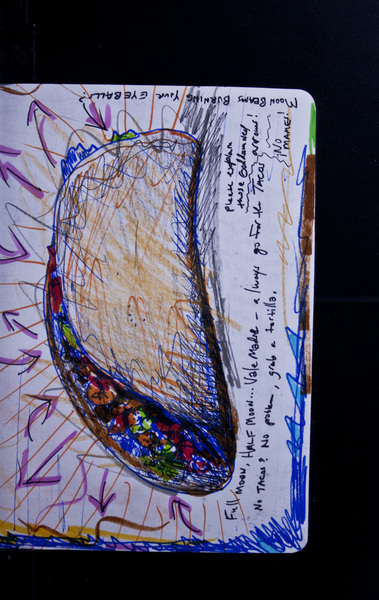 MOON BEAMS BURNING YOUR EYEBALLS?
Please explain
those Goddamned
arrows!
¡NO
MAMES!
Full MOON, HALF MOON... Vale Madre – always go for the TACOS
NO TACOS? No problem, grab a tortilla.